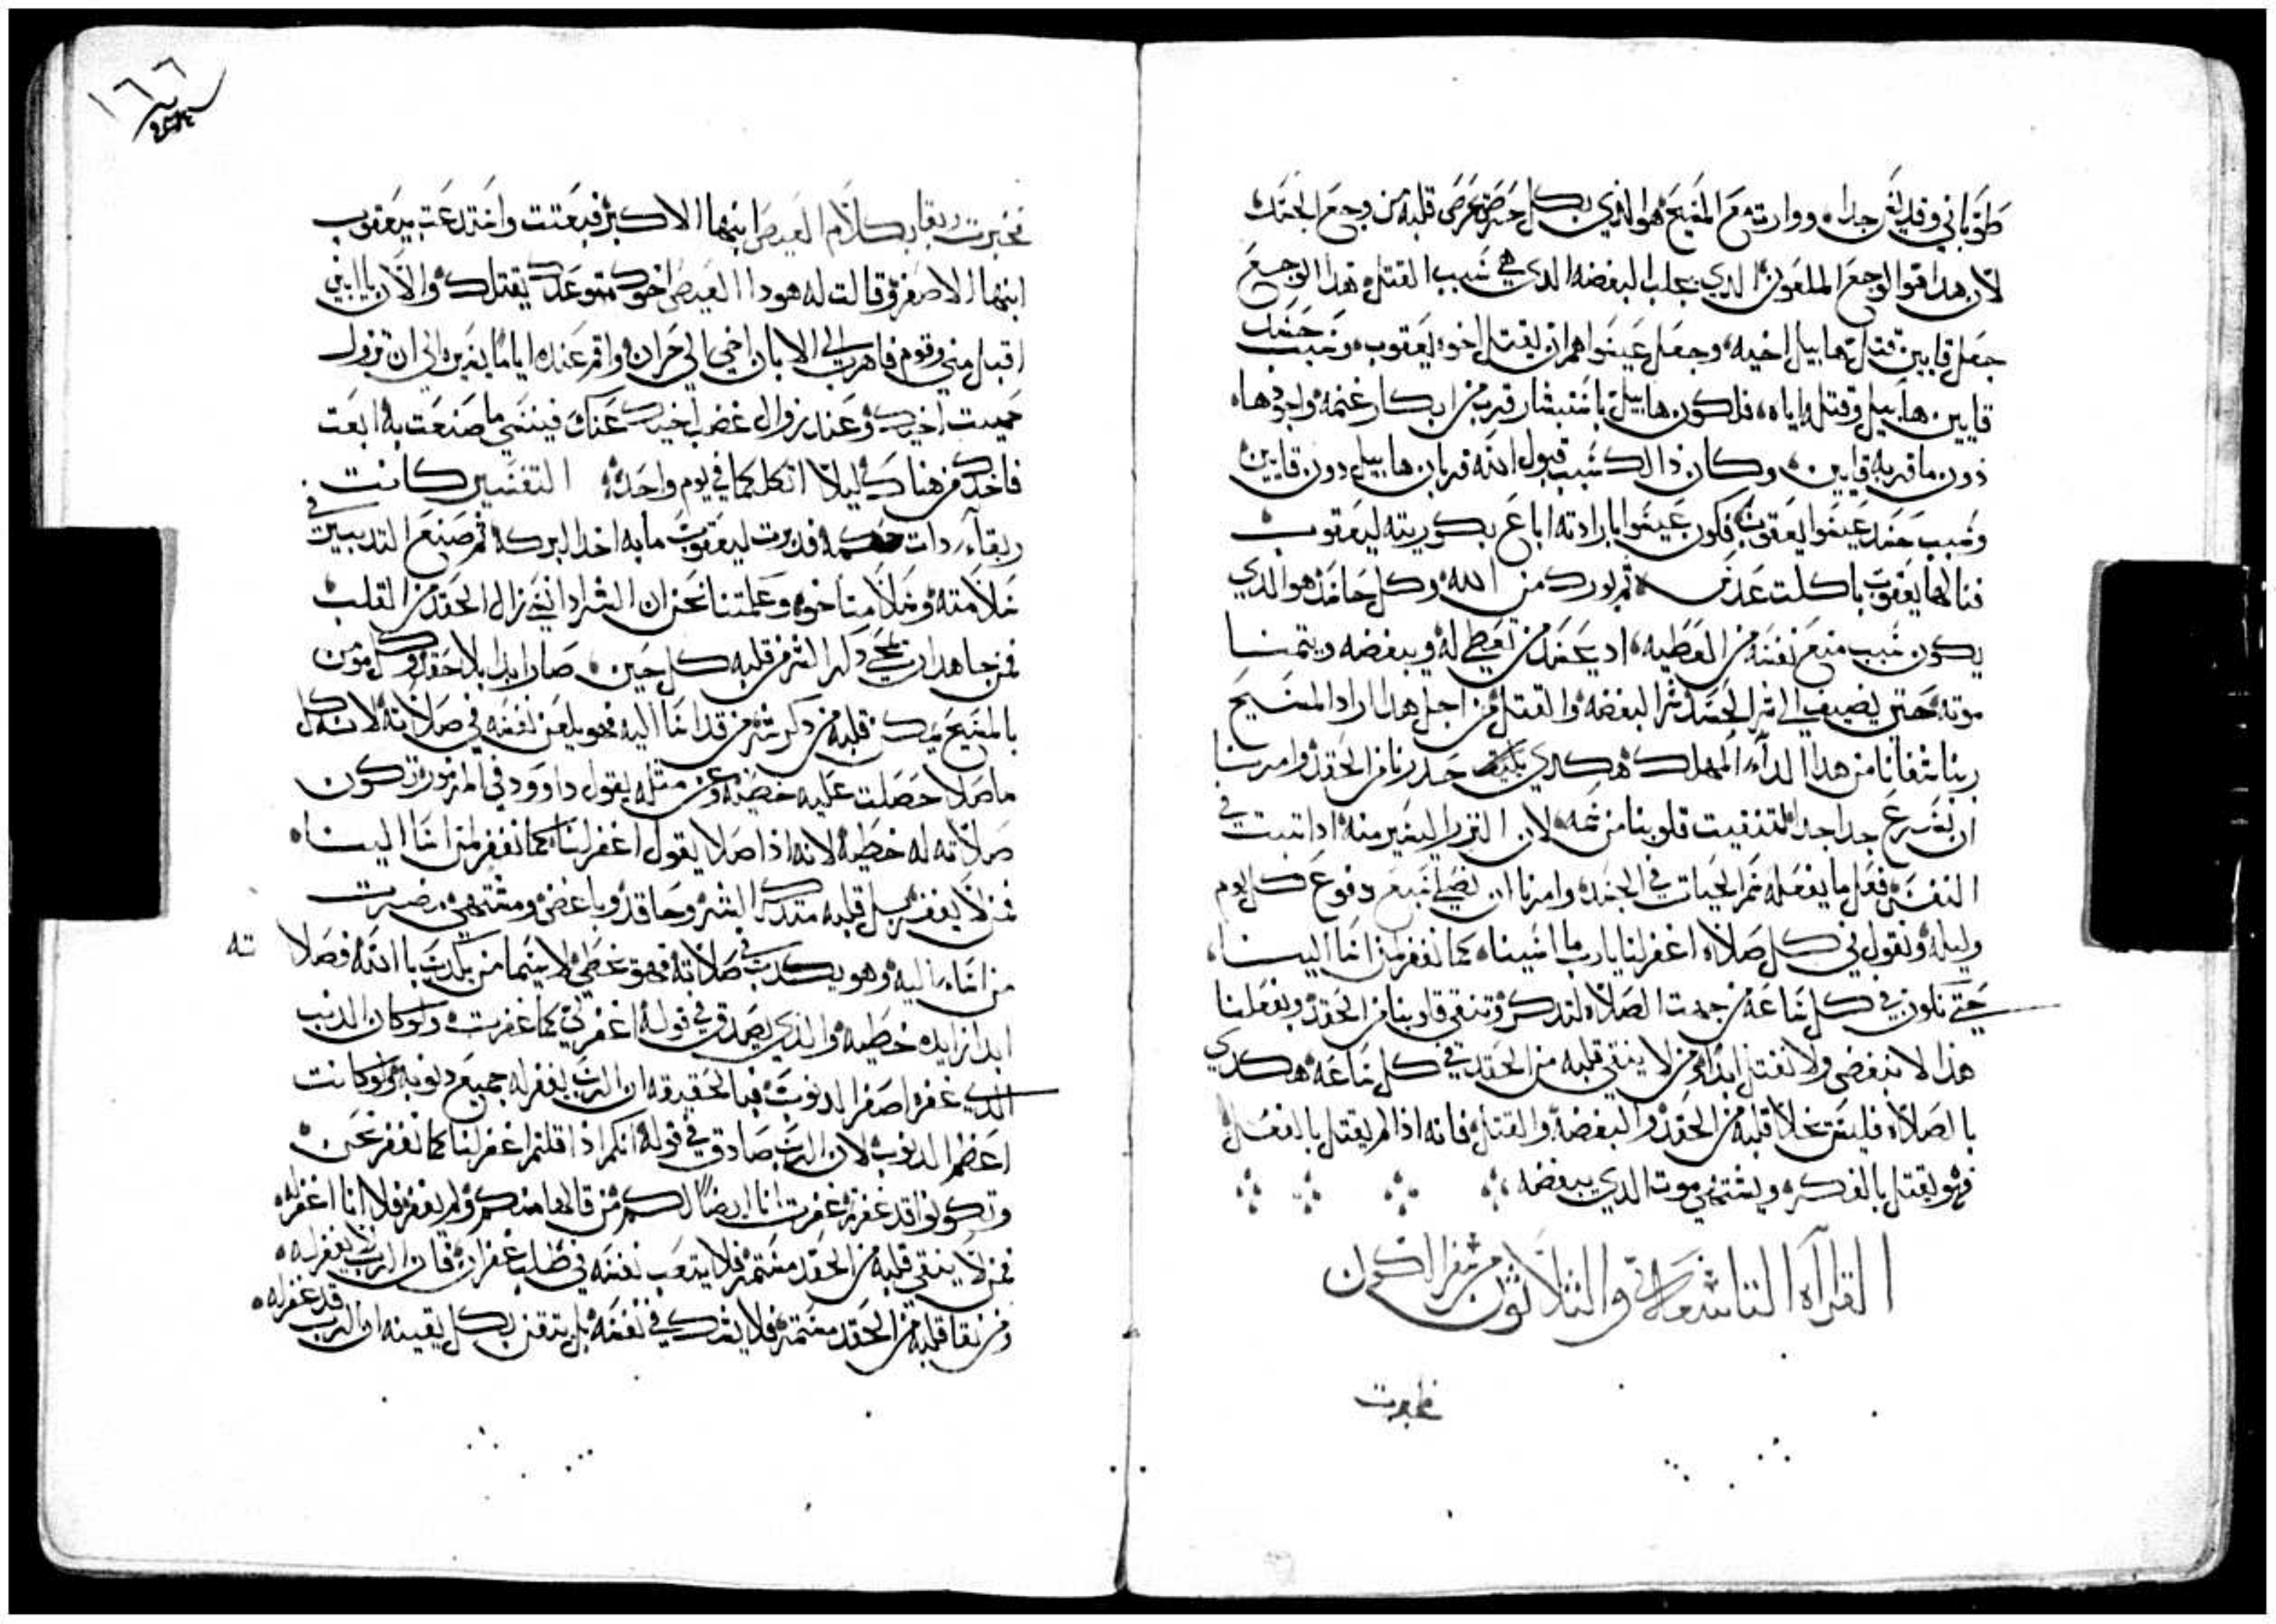 طوباني وقديس جدا، ووارته مع المسيح هو الذي بكل حرص يحرص قلبه من وجع الحسد
لان هدا هوا الوجع الملعون الدي يجلب البغضه الدي هي سبب القتل، هدا الوجع
جعل قايين قتل هابيل اخيه، وجعل عيسوا هم ان يقتل اخوه يعقوب، وسبب حسد
قايين هابيل وقتله اياه، فلكون هابيل باستبشار قرب من ابكار غنمه واجودها،
دون ما قربه قايين، وكان دالك سبب قبول الله قربان هابيل دون قايين
وسبب حسد عيسوا يعقوب، فكون عيسوا بارادته اباع بكوريته ليعقوب
فنالها يعقوب باكلت عدس، تم بورك من الله، وكل حاسد هو الدي
يكون سبب منع نفسه من العطيه، اد يحسد من تعطى له، ويبغضه ويتمنا
موته حتى يضيف الى شر الحسد شر البغضه والقتل، من اجل هدا اراد المسيح
ربنا شفانا من هدا الداء المهلك، هكدي حدرنا من الحقد، وامرنا
ان نسرع جدا جدا لتنقيت قلوبنا من سمه، لان النزر اليسير منه ادا تبت في
النفس فعل ما يفعله سم الحيات في الجسد، وامرنا ان نصلي سبع دفوع كل يوم
وليله، ونقول في كل صلاه اغفر لنا يارب ما اسينا، كما نغفر لمن اسا الينا،
حتى نكون في كل ساعه من جهت الصلاه نتدكر وتنقى قلوبنا من الحقد، وبفعلنا
هذا لا نبغض ولا نقتل ابدا، ومن لا ينقي قلبه من الحقد في كل ساعه هكدي
بالصلاه فليس يخلا قلبه من الحقد والبغضه والقتل، فانه اذا لم يقتل بالفعل
فهو يقتل بالفكر، ويشتهي موت الدي يبغضه،
القرآاه التاسعه والثلاثون من سفر التكوين
فاخبرت
١٦٦
فاخبرت ربقا بكلام العيص ابنها الاكبر، فبعتت واستدعت بيعقوب
ابنها الاصغر، وقالت له هودا العيص اخوك متوعدك بقتلك، والان يا ابني
اقبل مني وقوم فاهرب الى لابان اخي الى حران، واقم عنده اياما يسيره الى ان تزول
حميت اخيك، وعند زوال غضب اخيك عنك فينسى ما صنعت به، ابعت
فاخدك من هناك، ليلا اتكلكما في يوم واحد، التفسير كانت
ربقا دات حكمه فدبرت ليعقوب ما به اخد البركه، تم صنع التدبير في
سلامته، وسلامت اخوه، وعلمتنا نحن ان الشر ادا نسي زال الحقد من القلب
فمن جاهد ان يمحي دكر الشر من قلبه كل حين، صار ابدا بلا حقد، وكل مومن
بالمسيح يمسك قلبه من دكر شر من قد اسا اليه فهو يلعن نفسه في صلاته، لانه كل
ما صلا حصلت عليه خطيه، وعن متله يقول داوود في المزمور، تكون
صلاته له خطيه، لانه اذا صلا يقول اغفر لنا، كما نغفر لمن اسا الينا،
فمن لا يغفر بل قلبه متدكر الشر، وحاقد، وباغض، ومشتهي مضرت
من اساء اليه، وهو يكدب في صلاته، فهو يخطي، لاسيما من يكدب بالله، فصلاته
ابدا زايده خطيه، والدي يصدق في قوله اغفر لي كما غفرت، ولو كان الدنب
الدي غفره اصغر الدنوب، فبالحقيقه ان الرب يغفر له جميع دنوبه، ولو كانت
اعظم الدنوب، لان الرب صادق في قوله انكم اذا قلتم اغفر لنا كما نغفر نحن
وتكونوا قد غفرتم، غفرت انا ايضا لكم، من قالها منكم ولم يغفر فلا انا اغفر له
فمن لا ينقي قلبه من الحقد مستمر فلا يتعب نفسه في طلب غفران، فان الرب لا يغفر له،
ومن نقا قلبه من الحقد مستمر، فلا يشك في نفسه، بل يتقن بكل يقينه ان الرب قد غفر له،